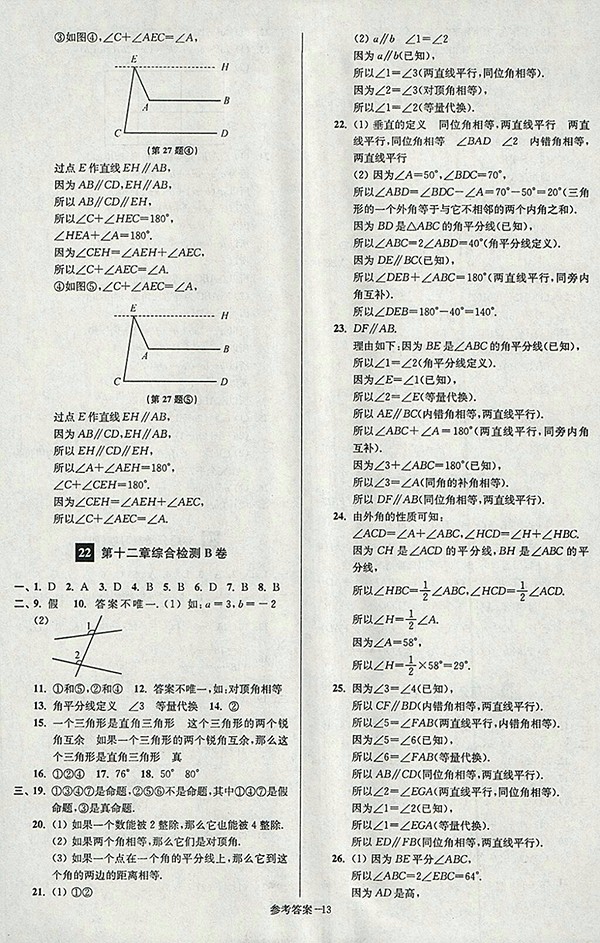 ③如图④,∠C+∠AEC=∠A,
E H
A B
C D
(第27题④)
过点E作直线EH∥AB,
因为AB∥CD,EH∥AB,
所以AB∥CD∥EH,
所以∠C+∠HEC=180°,
∠HEA+∠A=180°.
因为∠CEH=∠AEH+∠AEC,
所以∠C+∠AEC=∠A.
④如图⑤,∠C+∠AEC=∠A,
E H
A B
C D
(第27题⑤)
过点E作直线EH∥AB,
因为AB∥CD,EH∥AB,
所以EH∥CD∥EH,
所以∠A+∠AEH=180°,
∠C+∠CEH=180°.
因为∠CEH=∠AEH+∠AEC,
所以∠C+∠AEC=∠A.
22 第十二章综合检测B卷
一、1. D 2. A 3. D 4. B 5. B 6. D 7. B 8. B
二、9. 假 10. 答案不唯一.(1) 如:a=3,b=-2
(2)
1
2
11. ①和⑤,②和④ 12. 答案不唯一,如:对顶角相等
13. 角平分线定义 ∠3 等量代换 14. ②
15. 一个三角形是直角三角形 这个三角形的两个锐
角互余 如果一个三角形的两个锐角互余,那么这
个三角形是直角三角形 真
16. ①②④ 17. 76° 18. 50° 80°
三、19. ①③④⑦是命题,②⑤⑥不是命题,其中①④⑦是假
命题,③是真命题.
20. (1) 如果一个数能被2整除,那么它也能被4整除.
(2) 如果两个角相等,那么它们是对顶角.
(3) 如果一个点在一个角的平分线上,那么它到这
个角的两边的距离相等.
21. (1) ①②
(2) a∥b ∠1=∠2
因为a∥b(已知),
所以∠1=∠3(两直线平行,同位角相等).
因为∠2=∠3(对顶角相等),
所以∠1=∠2(等量代换).
22. (1) 垂直的定义 同位角相等,两直线平行 两直
线平行,同位角相等 ∠BAD ∠2 内错角相等,
两直线平行
(2) 因为∠A=50°,∠BDC=70°,
所以∠ABD=∠BDC-∠A=70°-50°=20°(三角
形的一个外角等于与它不相邻的两个内角之和).
因为BD是△ABC的角平分线(已知),
所以∠ABC=2∠ABD=40°(角平分线定义).
因为DE∥BC(已知),
所以∠DEB+∠ABC=180°(两直线平行,同旁内
角互补).
所以∠DEB=180°-40°=140°.
23. DF∥AB.
理由如下:因为BE是∠ABC的角平分线(已知),
所以∠1=∠2(角平分线定义).
因为∠E=∠1(已知),
所以∠2=∠E(等量代换).
所以AE∥BC(内错角相等,两直线平行).
所以∠ABC+∠A=180°(两直线平行,同旁内角
互补).
因为∠3+∠ABC=180°(已知),
所以∠3=∠A(同角的补角相等).
所以DF∥AB(同位角相等,两直线平行).
24. 由外角的性质可知:
∠ACD=∠A+∠ABC,∠HCD=∠H+∠HBC.
因为CH是∠ACD的平分线,BH是∠ABC的平
分线,
所以∠HBC=1/2∠ABC,∠HCD=1/2∠ACD.
所以∠H=1/2∠A.
因为∠A=58°,
所以∠H=1/2×58°=29°.
25. 因为∠3=∠4(已知),
所以CF∥BD(内错角相等,两直线平行).
所以∠5=∠FAB(两直线平行,内错角相等).
因为∠5=∠6(已知),
所以∠6=∠FAB(等量代换).
所以AB∥CD(同位角相等,两直线平行).
所以∠2=∠EGA(两直线平行,同位角相等).
因为∠1=∠2(已知),
所以∠1=∠EGA(等量代换).
所以ED∥FB(同位角相等,两直线平行).
26. (1) 因为BE平分∠ABC,
所以∠ABC=2∠EBC=64°.
因为AD是高,
参考答案—13